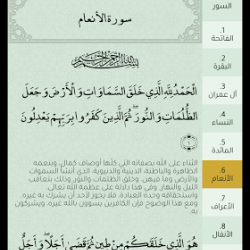 سورة الأنعام
بسم الله الرحمن الرحيم
الْحَمْدُ لِلَّهِ الَّذِي خَلَقَ السَّمَاوَاتِ وَالْأَرْضَ وَجَعَلَ
الظُّلُمَاتِ وَالنُّورَ ۖ ثُمَّ الَّذِينَ كَفَرُوا بِرَبِّهِمْ يَعْدِلُونَ
الثناء على الله بصفاته التي كلُّها أوصاف كمال، وبنعمه
الظاهرة والباطنة، الدينية والدنيوية، الذي أنشأ السموات
والأرض وما فيهن، وخلق الظلمات والنور، وذلك بتعاقب
الليل والنهار. وفي هذا دلالة على عظمة الله تعالى،
واستحقاقه وحده العبادة، فلا يجوز لأحد أن يشرك به غيره.
ومع هذا الوضوح فإن الكافرين يسوون بالله غيره، ويشركون
به.
هُوَ الَّذِي خَلَقَكُم مِّن طِينٍ ثُمَّ قَضَىٰ أَجَلًا ۖ وَأَجَلٌ
السور
1.
الفاتحة
2.
البقرة
3.
آل عمران
4.
النساء
5.
المائدة
6.
الأنعام
7.
الأعراف
8.
الأنفال